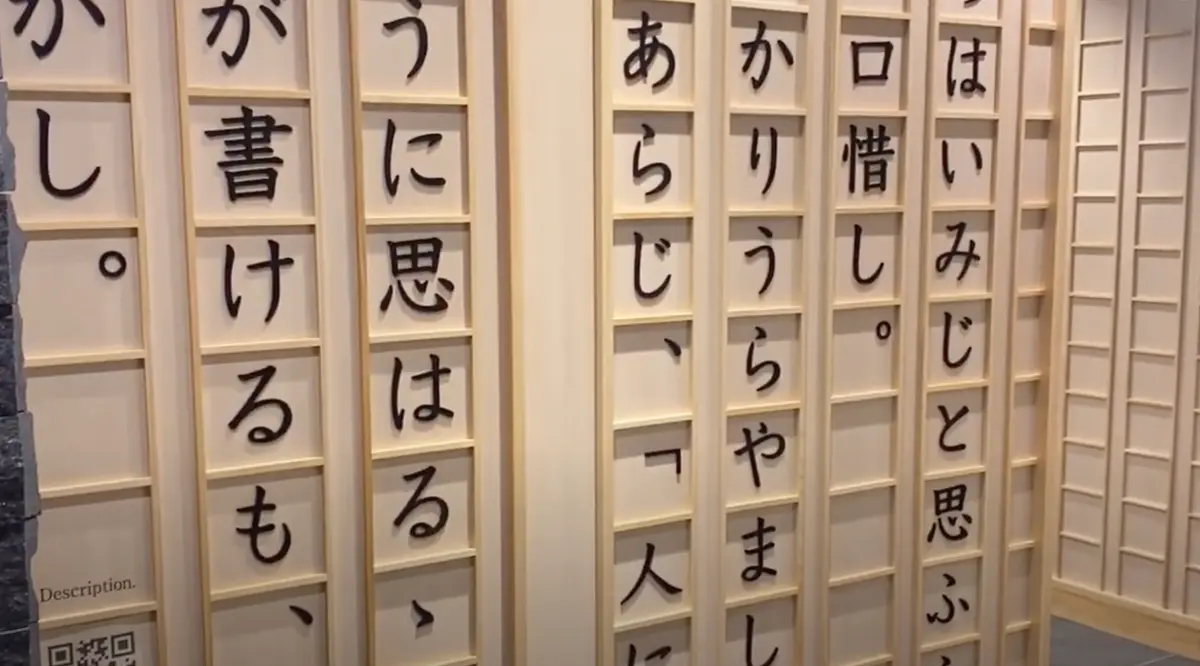 はいみじと思ふ
口惜し。
かりうらやまし
あらじ、「人に
うに思はるゝ
が書けるも、
かし。
Description.